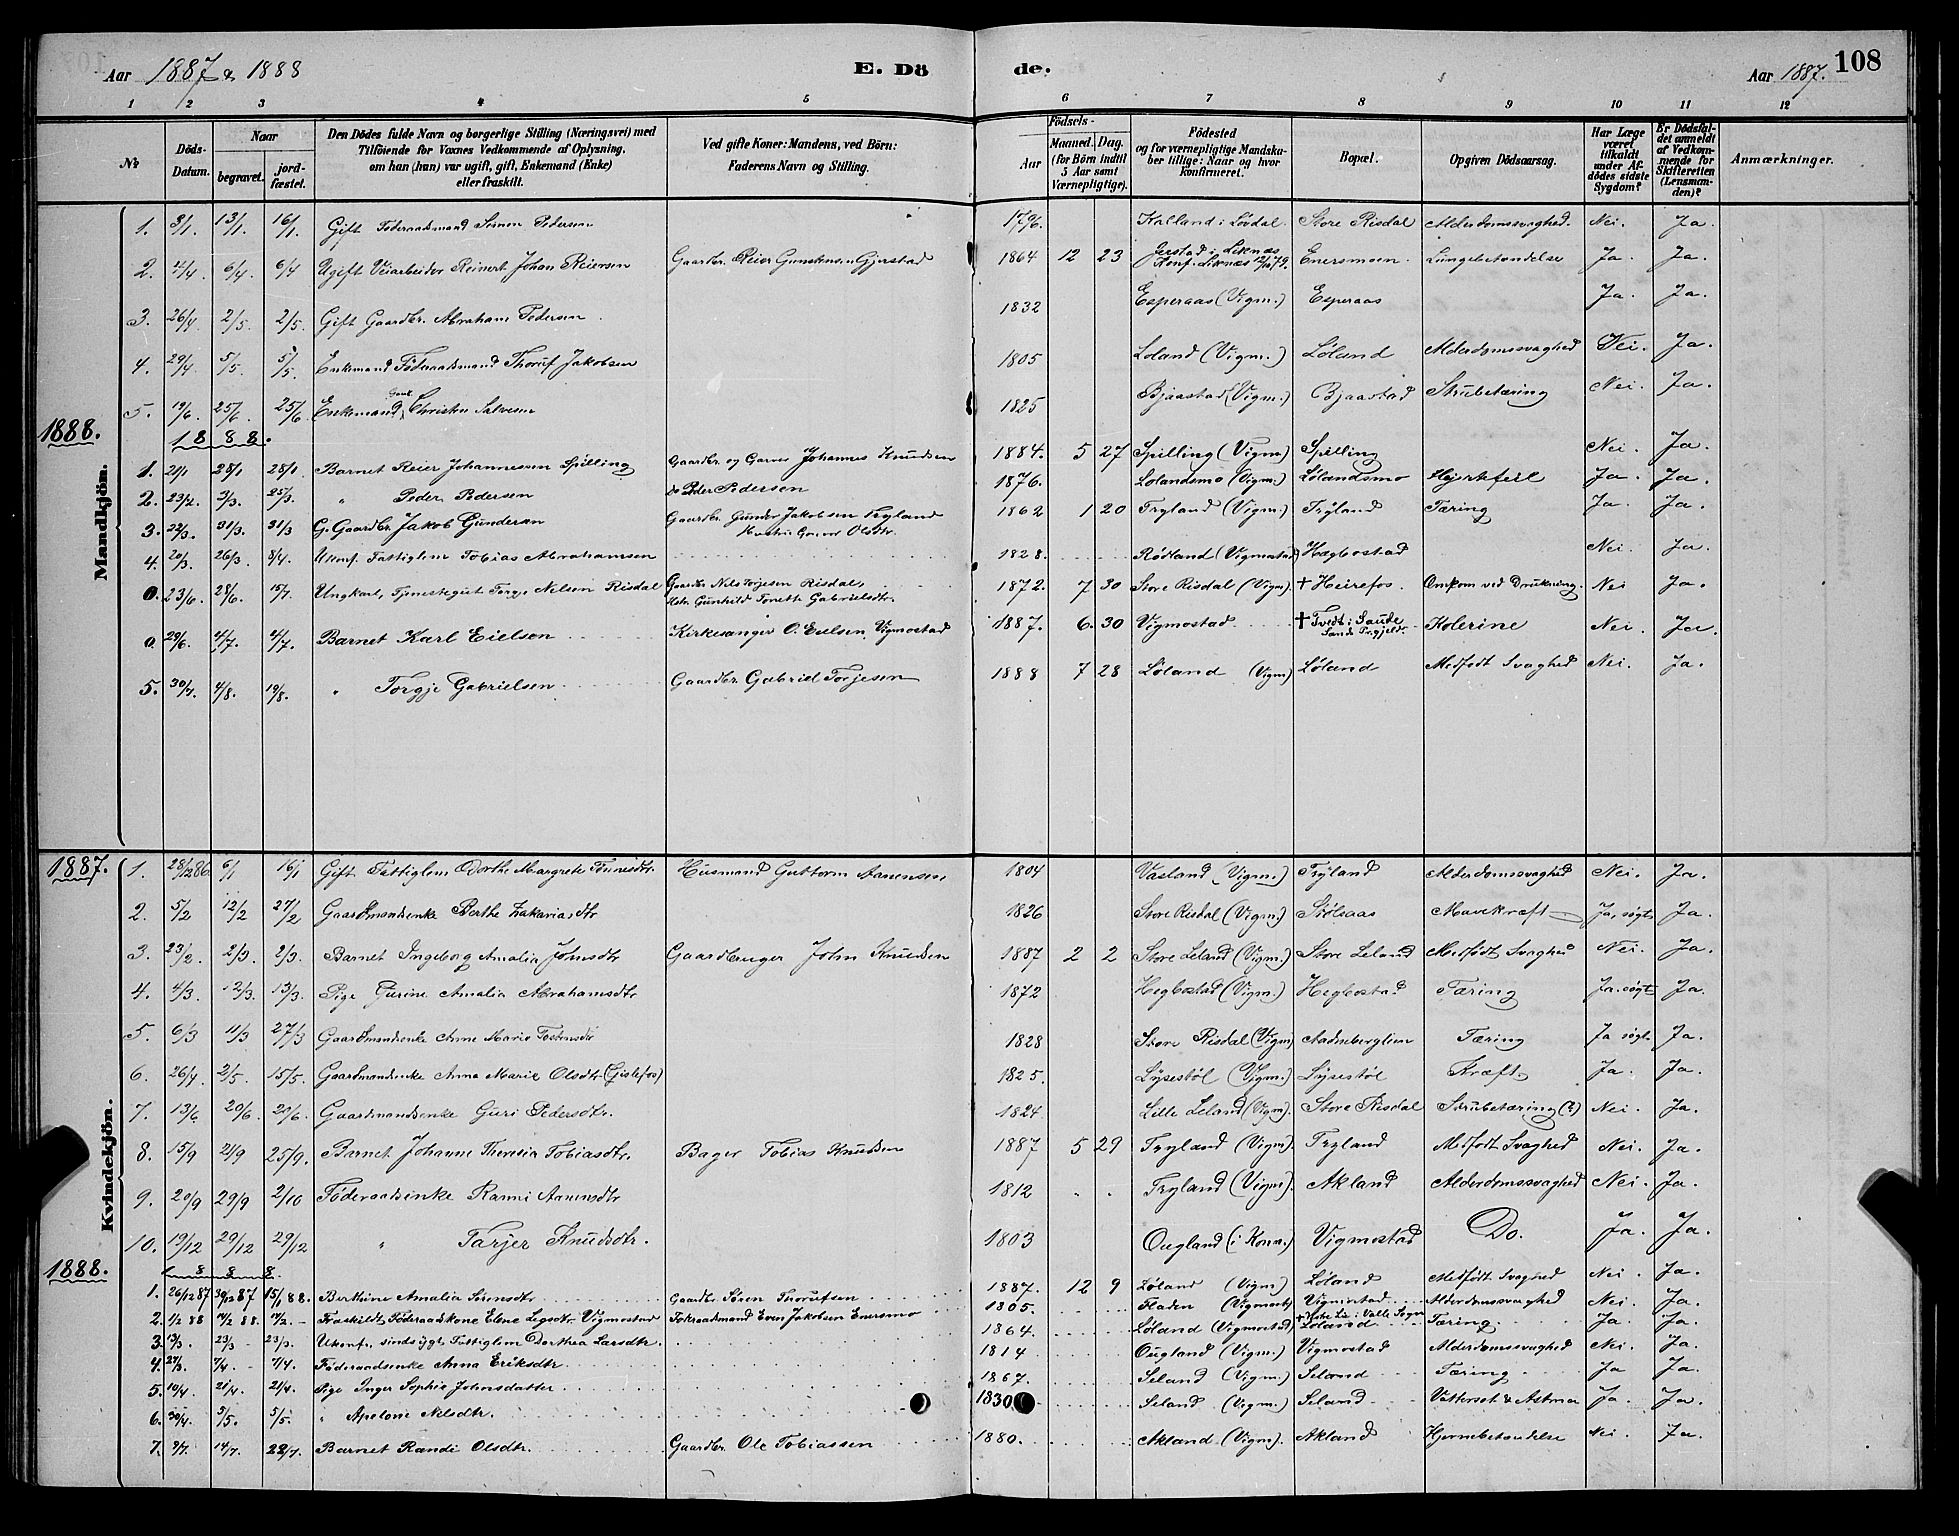 Aar 1887 & 1888
E. Dö
de.
Aar 1887.
108
1 2 3 4 5 6 7 8 9 10 11 12
No
Döds-Datum.
Naar
begravet.
jord-fæstet.
Den Dödes fulde Navn og borgerlige Stilling (Næringsvei) med
Tilföiende for Voxnes Vedkommende af Oplysning,
om han (hun) var ugift, gift, Enkemand (Enke)
eller fraskilt.
Ved gifte Koner: Mandens, ved Börn:
Faderens Navn og Stilling.
Födsels-
Aar
Maaned. Dag.
(for Börn indtil
5 Aar samt
Værnepligtige).
Födested
og for værnepligtige Mandska-
ber tillige: Naar og hvor
konfirmeret.
Bopæl.
Opgiven Dödsaarsag.
Har Læge
været
tilkaldt
under Af-
dödes sidste
Sygdom?
Er Dödsfal-
det anmeldt
af Vedkom-
mende for
Skifteretten
(Lensman-
den)?
Anmærkninger.
Mandkjön.
1. 3/1 13/1. 16/1. Gift Föderaadsmand Simon Pedersen 1796. i Løvdal. Store Risdal Alderdomssvaghed. Nei. Ja.
2. 2/4 6/4. 6/4 Ugift Veiarbeider Reinert Johan Reiersen Gaardbr. Reier Gjerstad 1864 12 23 Gjerstad i Liknæs Konf. Liknæs Enersmoen. Lungebetændelse Ja. Ja.
3. 26/4. 2/5. 2/5. Gift Gaardbr. Abraham Pedersen 1832 Esperaas (Vigm.) Esperaas Ja. Ja.
4. 29/4. 5/5. 5/5. Enkemand Föderaadsmand Thoruf Jakobsen 1805 Loland (Vigm.) Løland Alderdomssvaghed Nei. Ja.
5. 19/6. 25/6. 25/6 Enkemand Christen Salvesen 1825 Bjaastad (Vigm.) Bjaastad Strubetæring Nei. Ja.
1888.
1888.
1. 21/1 28/1 28/1. Barnet Reier Johannessen Spilling Gaardbr. og Garver Johannes Knudsen 1884. 5 27 Spilling (Vigm) Spilling Nei. Ja.
2. 23/2. 3/3. 25/3. " Peder Pedersen Do Peder Pedersen 1876. Lolandsmo (Vigm.) Lølandsmo Hjertefeil Ja. Ja.
3. 22/3. 31/3. 31/3 G. Gaardbr. Jakob Gundersen Gaardbr. Gunder Jakobsen Trÿland Hustru Olsdtr. 1862 1 20 Trÿland (Vigm.) Trÿland Tæring Ja. Ja.
4. 20/3. 26/3. 8/4. Ukonf. Fattiglem Tobias Abrahamsen 1828. Rødland (Vigmostad) Hægbostad Nei. Ja.
0. 23/6. 28/6. 15/7. Ungkarl, Tjenestegut Torje Nelsen Risdal Gaardbr. Nils Torjesen Risdal, Hstr. Gunhild Tonette Gabrielsdtr. 1872. 7 30 Store Risdal (Vigm.) † Heirefos. Omkom ved Drukning. Nei Ja.
0. 29/6. 4/7. 4/7. Barnet Karl Eielsen Kirkesanger O. Eielsen, Vigmostad 1887. 6. 30 Vigmostad † Tvedt i Saude Kolerine Nei. Ja.
5. 30/7. 4/8. 19/8. " Torgje Gabrielsen Gaardbr. Gabriel Torjesen 1888 7 28 Løland (Vigm) Løland Medfødt Svaghed Nei. Ja.
Kvindekjön.
1887.
1. 28/12 86 6/1 16/1 Gift Fattiglem Dorthe Margrete Tønnesdtr. Husmand Guttorm Aanensen, 1804 Vasland (Vigm.) Trÿland Alderdomssvaghed Nei. Ja.
2. 5/2 12/2 27/2 Gaardmandsenke Berthe Zakariasdtr 1826 Store Risdal (Vigm.) Stølsaas Mavekræft Ja, søgt Ja.
3. 23/2. 2/3. 2/3. Barnet Ingeborg Amalia Johnsdtr Gaardbruger John Knudsen 1887 2 2 Store Leland (Vigm.) Store Leland Medfødt Svaghed Nei. Ja.
4. 4/3. 12/3. 13/3. Pige Gurine Amalia Abrahamsdtr 1872 Hegbostad (Vigm.) Hegbostad Tæring Ja. søgt Ja.
5. 6/3 11/3 27/3 Gaardmandsenke Anne Marie 1828 Store Risdal (Vigm) Tæring Ja søgt Ja.
6. 26/4. 2/5. 15/5. Gaardmandsenke Anna Marie Olsdtr (Gislefos) 1825. Lÿsestøl (Vigm.) Lÿsestøl Kræft Ja. Ja.
7. 13/6 20/6. 20/6. Gaardmandsenke Guri Pedersdtr. 1824 Lille Leland (Vigm). Store Risdal Strubetæring (?) Nei. Ja.
8. 15/9 21/9 25/9. Barnet Johanne Theresia Tobiasdtr. Bager Tobias Knudsen 1887 5 29 Tryland (Vigm). Tryland Medfødt Svaghed Nei. Ja.
9. 20/9 29/9 2/10 Föderaadsenke Rannei Aanensdtr 1812 " " Tryland (Vigm). Akland Alderdomssvaghed Nei. Ja.
10. 19/12 29/12 29/12 " Tarjer Knudsdtr. 1803 Ougland (i Konn.) Vigmostad Do. Ja. Ja.
1888.
1 8 8 8.
1. 26/12 87 30/12 87 15/1 88. Berthine Amalia Sørensdtr Gaardbr. Søren Thorufsen 1887. 12 9 Løland (Vigm.) Løland Medfødt Svaghed Nei. Ja.
2. 1/2 88 14/2 88. 14/2. Fraskildt Föderaadskone Elene Vigmostad Föderaadmand Even Jakobsen Enersmo 1805. Fladen (Vigmost.) Vigmostad Alderdomssvaghed Nei. Ja.
3. 13/3. 23/3 23/3. Ukonf. sindssygt Fattiglem Dorthea Larsdtr. 1864. Løland (Vigmostad) Løland Tæring Ja. Ja.
4. 27/3. 7/4. 7/4. Föderaadsenke Anna Eriksdtr. 1814 Ougland (Vigm.) Vigmostad Alderdomssvaghed Nei. Ja.
5. 10/4. 21/4. 21/4. Pige Inger Sophie Johnsdatter 1867. Seland (Vigm) Seland Tæring Ja Ja.
6. 30/4. 5/5. 5/5. " Apelone Nilsdtr. 1830 Seland (Vigm.) Seland Vattersot & Astma Ja. Ja.
7. 9/7. 14/7. 22/7. Barnet Randi Olsdtr. Gaardbr. Ole Tobiassen 1880. Akland (Vigm). Akland Hjernebetændelse Nei. Ja.